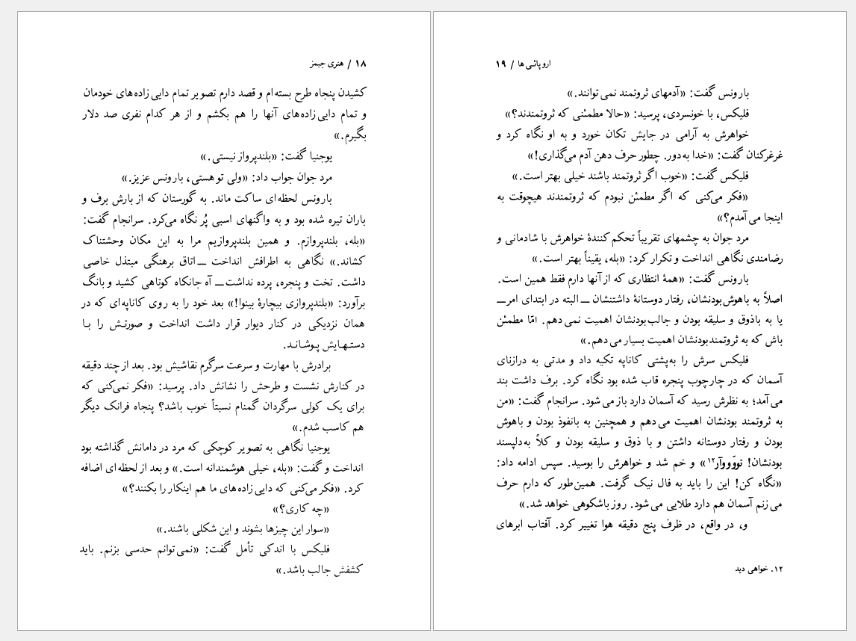 ۱۸ / هنری جیمز
کشیدن پنجاه طرح بسته‌ام و قصد دارم تصویر تمام دایی‌زاده‌های خودمان
و تمام دایی‌زاده‌های آنها را هم بکشم و از هر کدام نفری صد دلار
بگیرم.»
یوجنیا گفت: «بلندپرواز نیستی.»
مرد جوان جواب داد: «ولی تو هستی، بارونس عزیز.»
بارونس لحظه‌ای ساکت ماند. به گورستان که از بارش برف و
باران تیره شده بود و به واگنهای اسبی پُر نگاه می‌کرد. سرانجام گفت:
«بله، بلندپروازم. و همین بلندپروازیم مرا به این مکان وحشتناک
کشاند.» نگاهی به اطرافش انداخت ــ اتاق برهنگی مبتذل خاصی
داشت. تخت و پنجره، پرده نداشت ــ آه جانکاه کوتاهی کشید و بانگ
برآورد: «بلندپروازی بیچارهٔ بینوا!» بعد خود را به روی کاناپه‌ای که در
همان نزدیکی در کنار دیوار قرار داشت انداخت و صورتش را با
دستهایش پوشاند.
برادرش با مهارت و سرعت سرگرم نقاشیش بود. بعد از چند دقیقه
در کنارش نشست و طرحش را نشانش داد. پرسید: «فکر نمی‌کنی که
برای یک کولی سرگردان گمنام نسبتاً خوب باشد؟ پنجاه فرانک دیگر
هم کاسب شدم.»
یوجنیا نگاهی به تصویر کوچکی که مرد در دامانش گذاشته بود
انداخت و گفت: «بله، خیلی هوشمندانه است.» و بعد از لحظه‌ای اضافه
کرد. «فکر می‌کنی که دایی‌زاده‌های ما هم اینکار را بکنند؟»
«چه کاری؟»
«سوار این چیزها بشوند و این شکلی باشند.»
فلیکس با اندکی تأمل گفت: «نمی‌توانم حدسی بزنم. باید
کشفش جالب باشد.»
اروپائی‌ها / ۱۹
بارونس گفت: «آدمهای ثروتمند نمی‌توانند.»
فلیکس، با خونسردی، پرسید: «حالا مطمئنی که ثروتمندند؟»
خواهرش به آرامی در جایش تکان خورد و به او نگاه کرد و
غرغرکنان گفت: «خدا به‌دور. چطور حرف دهن آدم می‌گذاری!»
فلیکس گفت: «خوب اگر ثروتمند باشند خیلی بهتر است.»
«فکر می‌کنی که اگر مطمئن نبودم که ثروتمندند هیچوقت به
اینجا می‌آمدم؟»
مرد جوان به چشمهای تقریباً تحکم کنندهٔ خواهرش با شادمانی و
رضامندی نگاهی انداخت و تکرار کرد: «بله، یقیناً بهتر است.»
بارونس گفت: «همهٔ انتظاری که از آنها دارم فقط همین است.
اصلاً به باهوش‌بودنشان، رفتار دوستانهٔ داشتنشان ــ البته در ابتدای امر ــ
یا به باذوق و سلیقه بودن و جالب‌بودنشان اهمیت نمی‌دهم. امّا مطمئن
باش که به ثروتمندبودنشان اهمیت بسیار می‌دهم.»
فلیکس سرش را به‌پشتی کاناپه تکیه داد و مدتی به درازنای
آسمان که در چارچوب پنجره قاب شده بود نگاه کرد. برف داشت بند
می‌آمد؛ به نظرش رسید که آسمان دارد باز می‌شود. سرانجام گفت: «من
به ثروتمند بودنشان اهمیت می‌دهم و همچنین به بانفوذ بودن و باهوش
بودن و رفتار دوستانه داشتن و با ذوق و سلیقه بودن و کلاً به‌دلپسند
بودنشان! توّوِوآر۱۲» و خم شد و خواهرش را بوسید. سپس ادامه داد:
«نگاه کن! این را باید به فال نیک گرفت. همین‌طور که دارم حرف
می‌زنم آسمان هم دارد طلایی می‌شود. روز باشکوهی خواهد شد.»
و، در واقع، در ظرف پنج دقیقه هوا تغییر کرد. آفتاب ابرهای
۱۲. خواهی دید